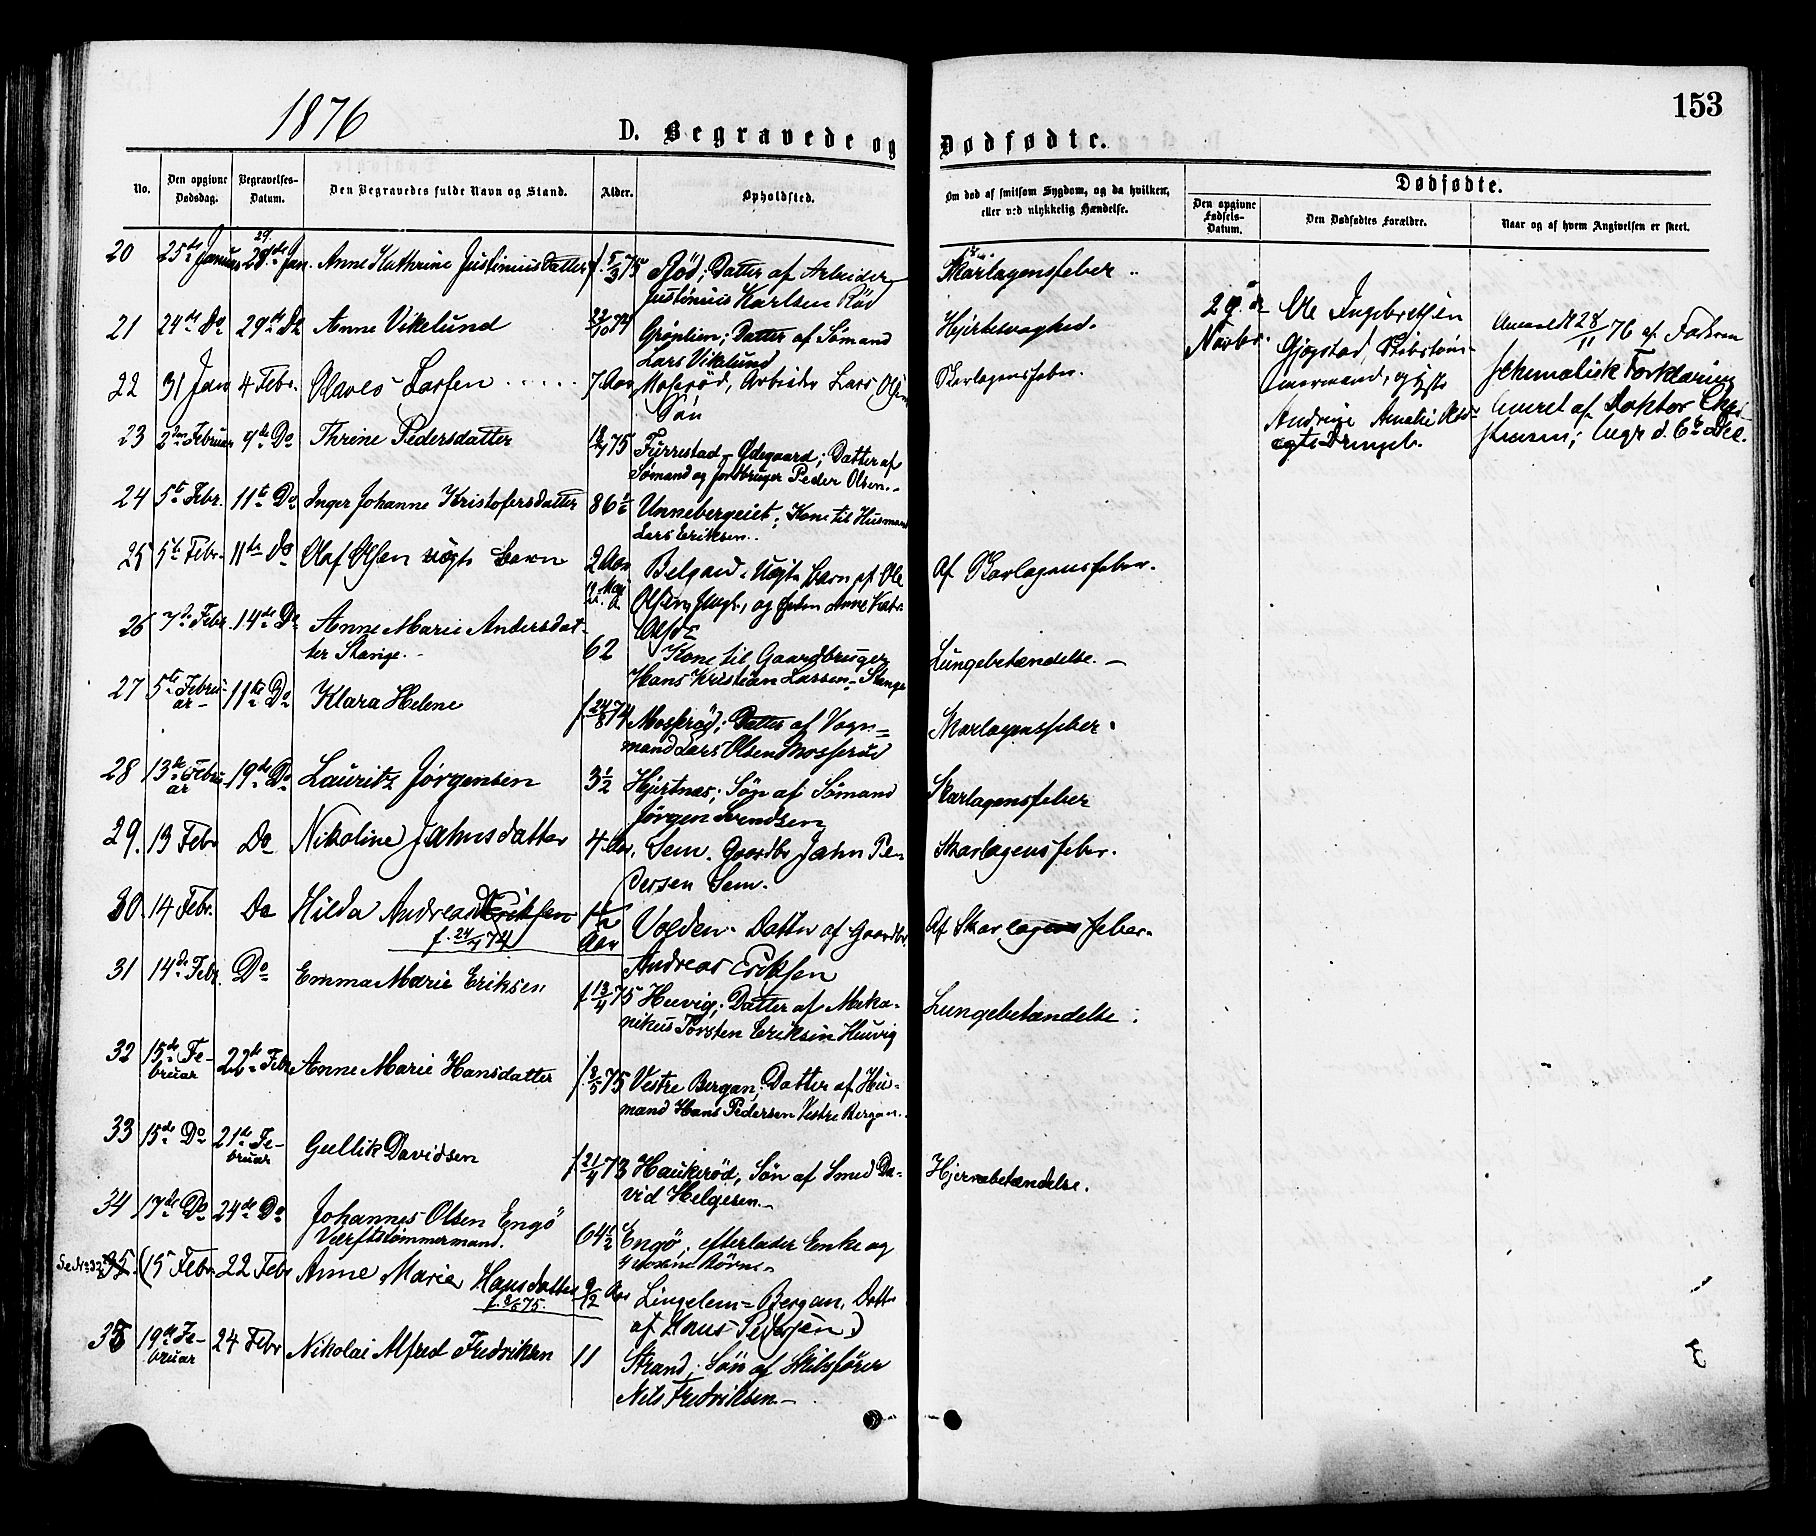 153
1876
D. Begravede og Dødfødte.
No.
Den opgivne Dødsdag.
Begravelses-Datum.
Den Begravedes fulde Navn og Stand.
Alder.
Opholdsted.
Om død af smitsom Sygdom, og da hvilken,
eller ved ulykkelig Hændelse.
Dødfødte.
Den opgivne Fødsels-Datum.
Den Dødfødtes Forældre.
Naar og af hvem Angivelsen er skeet.
20 25de Januar 29 28de Jan. Anne Kathrine Justiniusdatter f. 5/3 75 Rød; Datter af Arbeider Skarlagensfeber
Justinius Karlsen Rød
21 24de Do 29de Do Anne Vikelund 74 Grøplien; Datter af Sømand Hjertesvaghed.
Lars Vikelund
22 31 Jan 4 Febr. Olaves Larsen 7 Aar Moserød, Arbeider Lars Olsen Skarlagensfeber.
Søn
23 2den Februar 9de Do Thrine Pedersdatter 75 Furrestad-Ødegaard; Datter af
Sømand og Jordbruger Peder Olsen.
24 5te Febr. 11te Do Inger Johanne Kristofersdatter 86 Unnebergeiet; Kone til Husmand
Lars Eriksen.
25 5te Febr. 11te Do Olaf Olsen uægte Barn 2 Aar Belgau. Uægte Barn af Ole Af Skarlagensfeber.
Olsen og Anne
26 7de Febr 14de Do Anne Marie Andersdat-
ter Skarige. 62 Kone til Gaardbruger Lungebetændelse.
Hans Kristian Larsen,
27 5te Febru-
ar 11te Do Klara Helene f. 24/8 74 Moserød; Datter af Vogn- Skarlagensfeber.
mand Lars Olsen Moserød
28 13de Febru-
ar 19de Do Lauritz Jørgensen 3½ Hjertnæs; Søn af Sømand Skarlagensfeber
Jørgen Svendsen
29. 13 Febr Do Nikoline Jahnsdatter 4 Aar. Sem. Gaardbr Jahn Pe- Skarlagensfeber.
dersen Sem.
30. 14 Febr. Do Hilda Andreas Eriksen 1½ Aar Volden. Datter af Gaardbr. Af Skarlagensfeber.
f. 24/4 74 Andreas Eriksen
31 14de Febr. Do Emma Marie Eriksen f. 13/4 75 Huvig; Datter af Meka- Lungebetændelse.
nikus Torsten Eriksen Huvig
32 15de Fe-
bruar 22de Febr Anne Marie Hansdatter f. 8/5 75 Vestre Bergan; Datter af Hus-
mand Hans Pedersen Vestre Bergan.
33 15de Do 21de Fe-
bruar Gullik Davidsen f. 21/4 73 Haukerød, Søn af Smed Da- Hjernebetændelse.
vid Helgesen.
34 17de Do 24de Do Johannes Olsen Engø
Værftstømmermand. 64½ Engø, efterlader Enke og
4 voxne Børn.
Se No 32 35. (15 Febr 22 Febr Anne Marie Hansdatter 9/12 Aar Lingelem-Bergan, Datt.
f. 8/5 75. af Hans Pedersen)
35 19de Fe-
bruar 24 Febr Nikolai Alfred Fredriksen 11 Strand; Søn af Skibsfører
Nils Fredriksen.
29de
Novbr.
Ole Ingebretsen
Gjøgstad, Skibstøm-
mermand, og
Andrine Amalie
ægte Drengeb.
Anmeldt 28/11 76 af Faderen
schematisk Forklaring
leveret af Doktor Chri-
stensen; begr. d. 6te Dec.